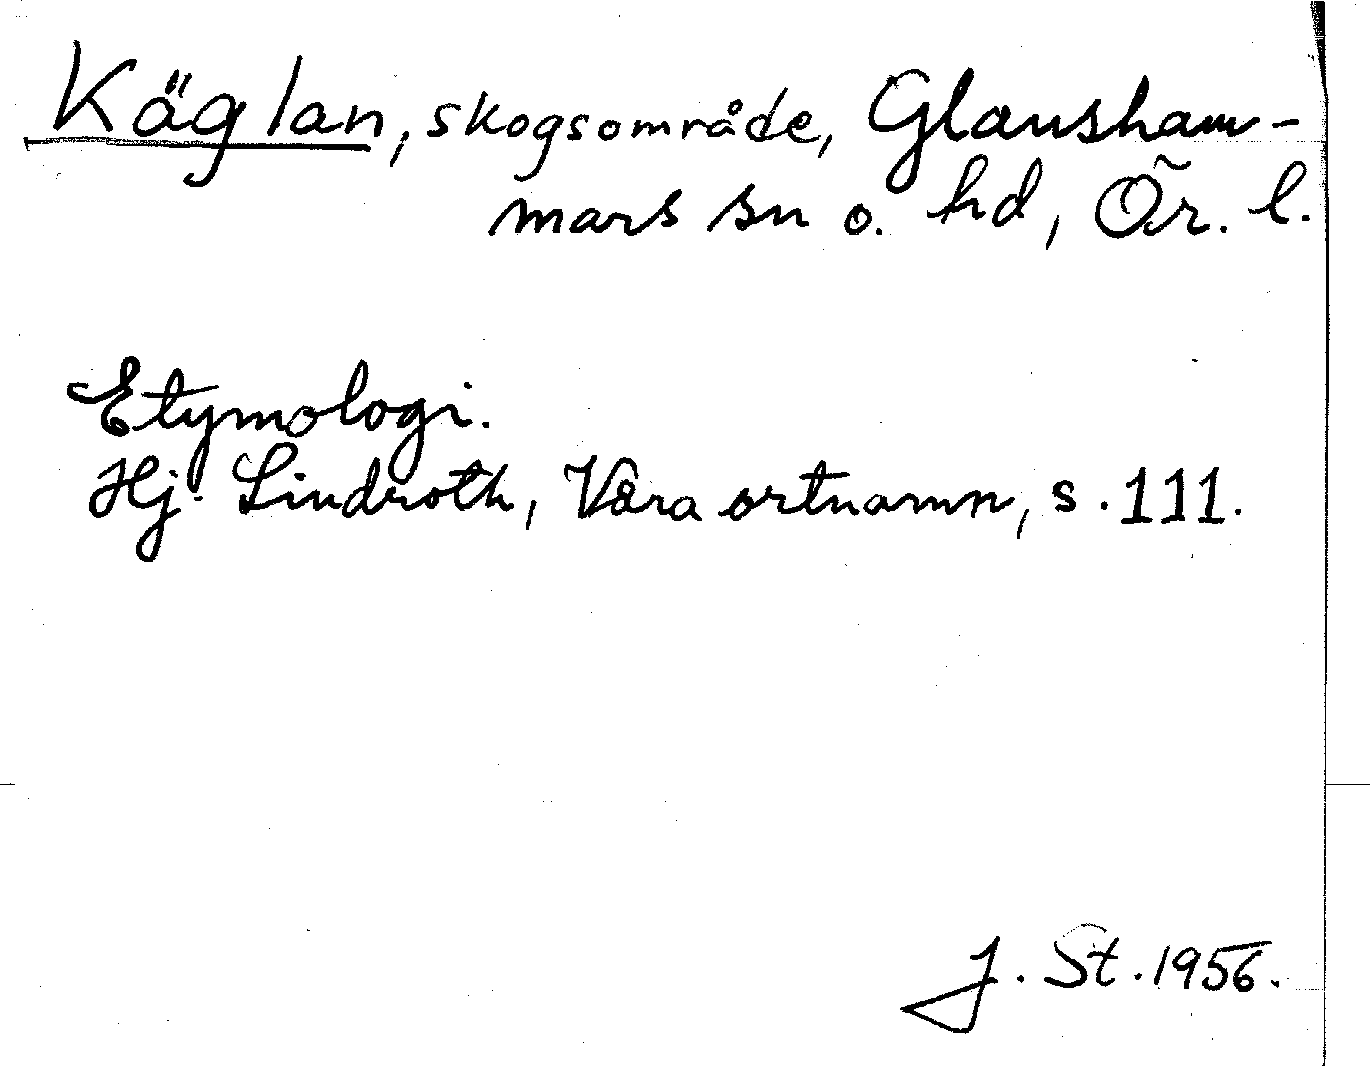 Käglan, skogsområde, Glansham-
mars sn o. hd, Ör. l.
Etymologi.
Hj. Lindroth, Våra ortnamn, s. 111.
J. St. 1956.